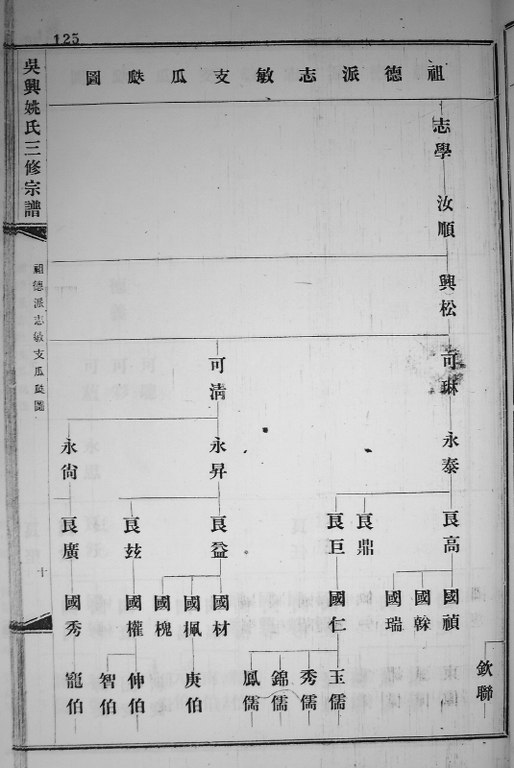 125
祖德派志敏支瓜瓞圖
吳興姚氏三修宗譜
祖德派志敏支瓜瓞圖
十
志學
汝順
興松
可琳
可清
永泰
永昇
永尙
良高
良鼎
良巨
良益
良玆
良廣
國禎
國榦
國瑞
國仁
國材
國珮
國槐
國權
國秀
欽聯
玉儒
秀儒
錦儒
鳳儒
庚伯
伸伯
智伯
寵伯